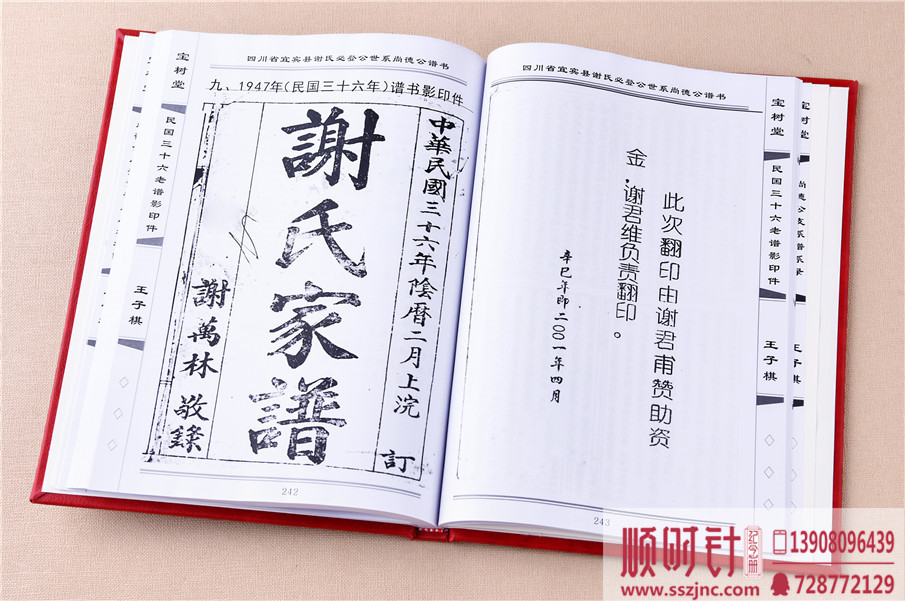 四川省宜宾县谢氏必登公世系尚德公谱书
九、1947年(民国三十六年)谱书影印件
中華民國三十六年陰曆二月上浣
訂
謝氏家譜
謝萬林 敬錄
宝树堂
民国三十六老谱影印件
王子棋
242
四川省宜宾县谢氏必登公世系尚德公谱书
此次翻印由谢君甫赞助资
金,谢君维负责翻印。
辛巳年即二00一年四月
宝树堂
民国三十六老谱影印件
王子棋
243
宝树堂
顺时针
纪念册
www.sszjnc.com
13908096439
728772129